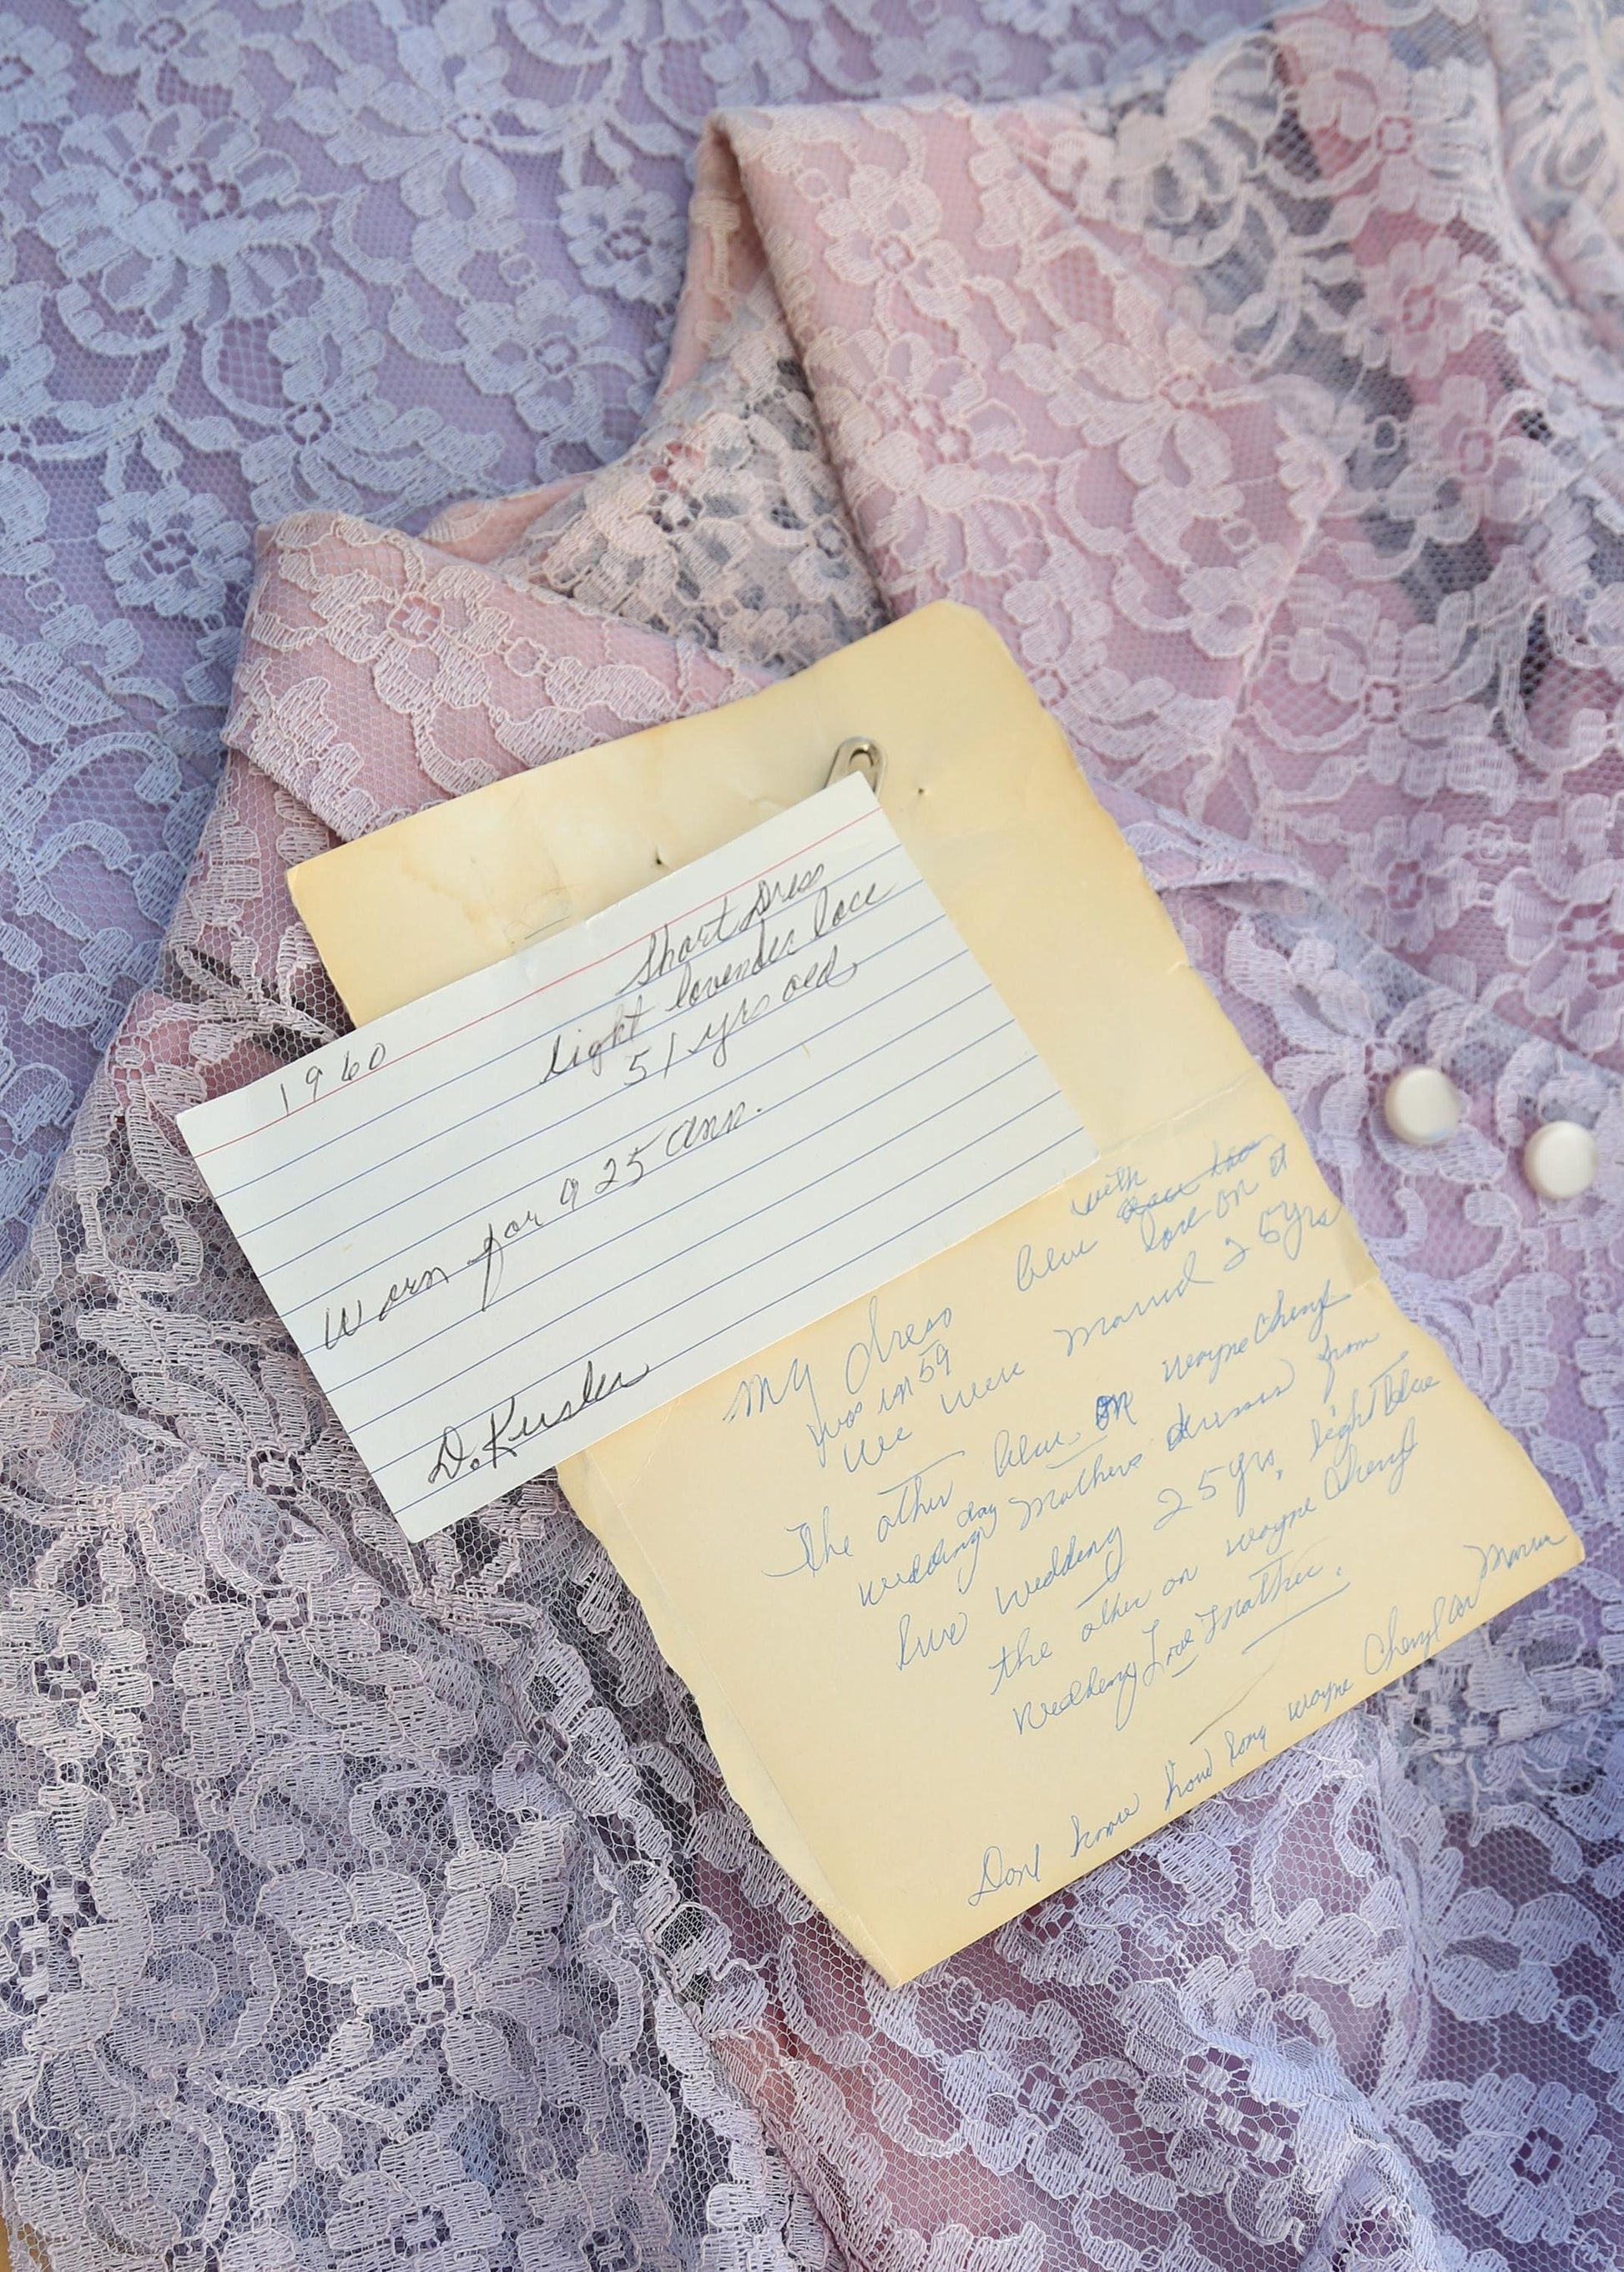 1960
Short Dress
light lavender lace
51 yrs old
Worn for a 25 ann.
D. Keesler
with
blue lace on it
My dress
was in 59
We were Married 25yrs
The other blue. on wayne Cheryl
wedding day Mothers dresses from
two wedding 25yrs, light blue
the other on wayne Cheryl
Wedding Love Mother.
Dont know how long wayne Cheryl